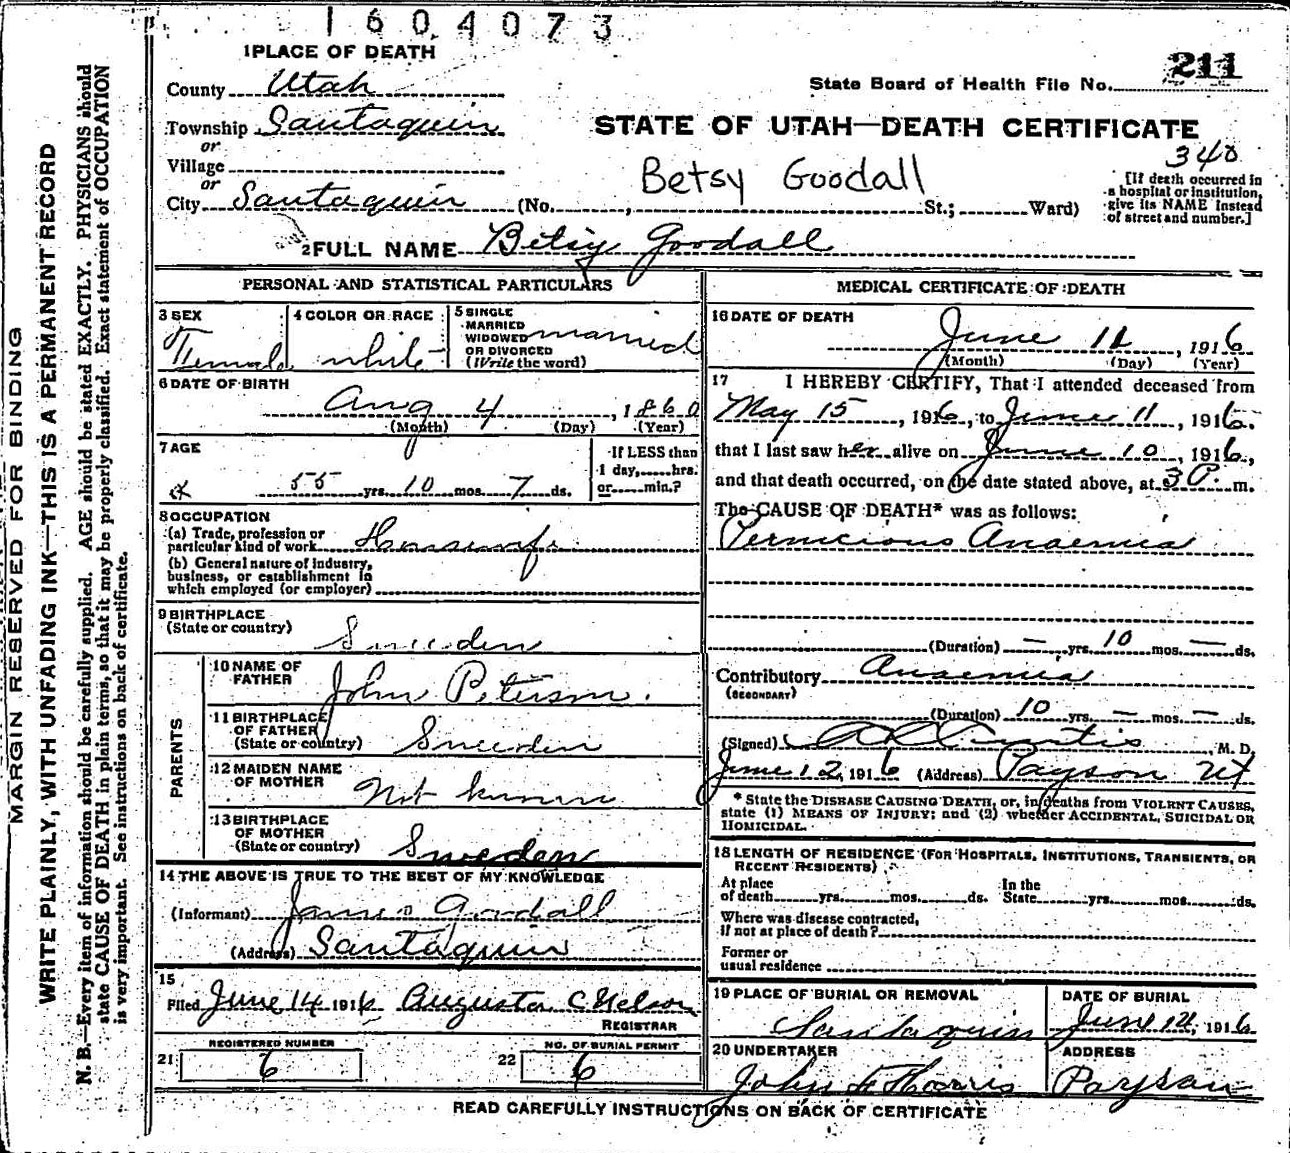 1604073
1 PLACE OF DEATH
County Utah
State Board of Health File No. 211
Township Santaquin
STATE OF UTAH—DEATH CERTIFICATE
or
Village
340
Betsy Goodall
or
City Santaquin (No. , St.; Ward)
[If death occurred in
a hospital or institution,
give its NAME instead
of street and number.]
2 FULL NAME Betsy Goodall
PERSONAL AND STATISTICAL PARTICULARS
3 SEX
Female
4 COLOR OR RACE
white
5 SINGLE
MARRIED
WIDOWED
OR DIVORCED
(Write the word)
married
6 DATE OF BIRTH
Aug 4, 1860
(Month) (Day) (Year)
7 AGE
55 yrs. 10 mos. 7 ds.
If LESS than
1 day, hrs.
or min.?
8 OCCUPATION
(a) Trade, profession or
particular kind of work Housewife
(b) General nature of industry,
business, or establishment in
which employed (or employer)
9 BIRTHPLACE
(State or country)
Sweeden
PARENTS
10 NAME OF
FATHER
John Peterson.
11 BIRTHPLACE
OF FATHER
(State or country) Sweeden
12 MAIDEN NAME
OF MOTHER
Not known
13 BIRTHPLACE
OF MOTHER
(State or country) Sweden
14 THE ABOVE IS TRUE TO THE BEST OF MY KNOWLEDGE
(Informant) James Goodall
(Address) Santaquin
15
Filed June 14 1916 Augusta C Nelson
REGISTRAR
REGISTERED NUMBER
21 6
NO. OF BURIAL PERMIT
22 6
MEDICAL CERTIFICATE OF DEATH
16 DATE OF DEATH
June 11, 1916
(Month) (Day) (Year)
17 I HEREBY CERTIFY, That I attended deceased from
May 15, 1916, to June 11, 1916.
that I last saw her alive on June 10, 1916,
and that death occurred, on the date stated above, at 3 P. m.
The CAUSE OF DEATH* was as follows:
Pernicious Anaemia
(Duration) — yrs. 10 mos. — ds.
Contributory Anaemia
(SECONDARY)
(Duration) 10 yrs. — mos. — ds.
(Signed) A L Curtis, M. D.
June 12, 1916 (Address) Payson Ut
* State the DISEASE CAUSING DEATH, or, in deaths from VIOLENT CAUSES,
state (1) MEANS OF INJURY; and (2) whether ACCIDENTAL, SUICIDAL OR
HOMICIDAL.
18 LENGTH OF RESIDENCE (FOR HOSPITALS, INSTITUTIONS, TRANSIENTS, OR
RECENT RESIDENTS)
At place
of death yrs. mos. ds.
In the
State yrs. mos. ds.
Where was disease contracted,
if not at place of death?
Former or
usual residence
19 PLACE OF BURIAL OR REMOVAL
Santaquin
DATE OF BURIAL
June 12, 1916
20 UNDERTAKER
John F Harris
ADDRESS
Payson
READ CAREFULLY INSTRUCTIONS ON BACK OF CERTIFICATE
MARGIN RESERVED FOR BINDING
WRITE PLAINLY, WITH UNFADING INK—THIS IS A PERMANENT RECORD
N. B.—Every item of information should be carefully supplied. AGE should be stated EXACTLY. PHYSICIANS should
state CAUSE OF DEATH in plain terms, so that it may be properly classified. Exact statement of OCCUPATION
is very important. See instructions on back of certificate.